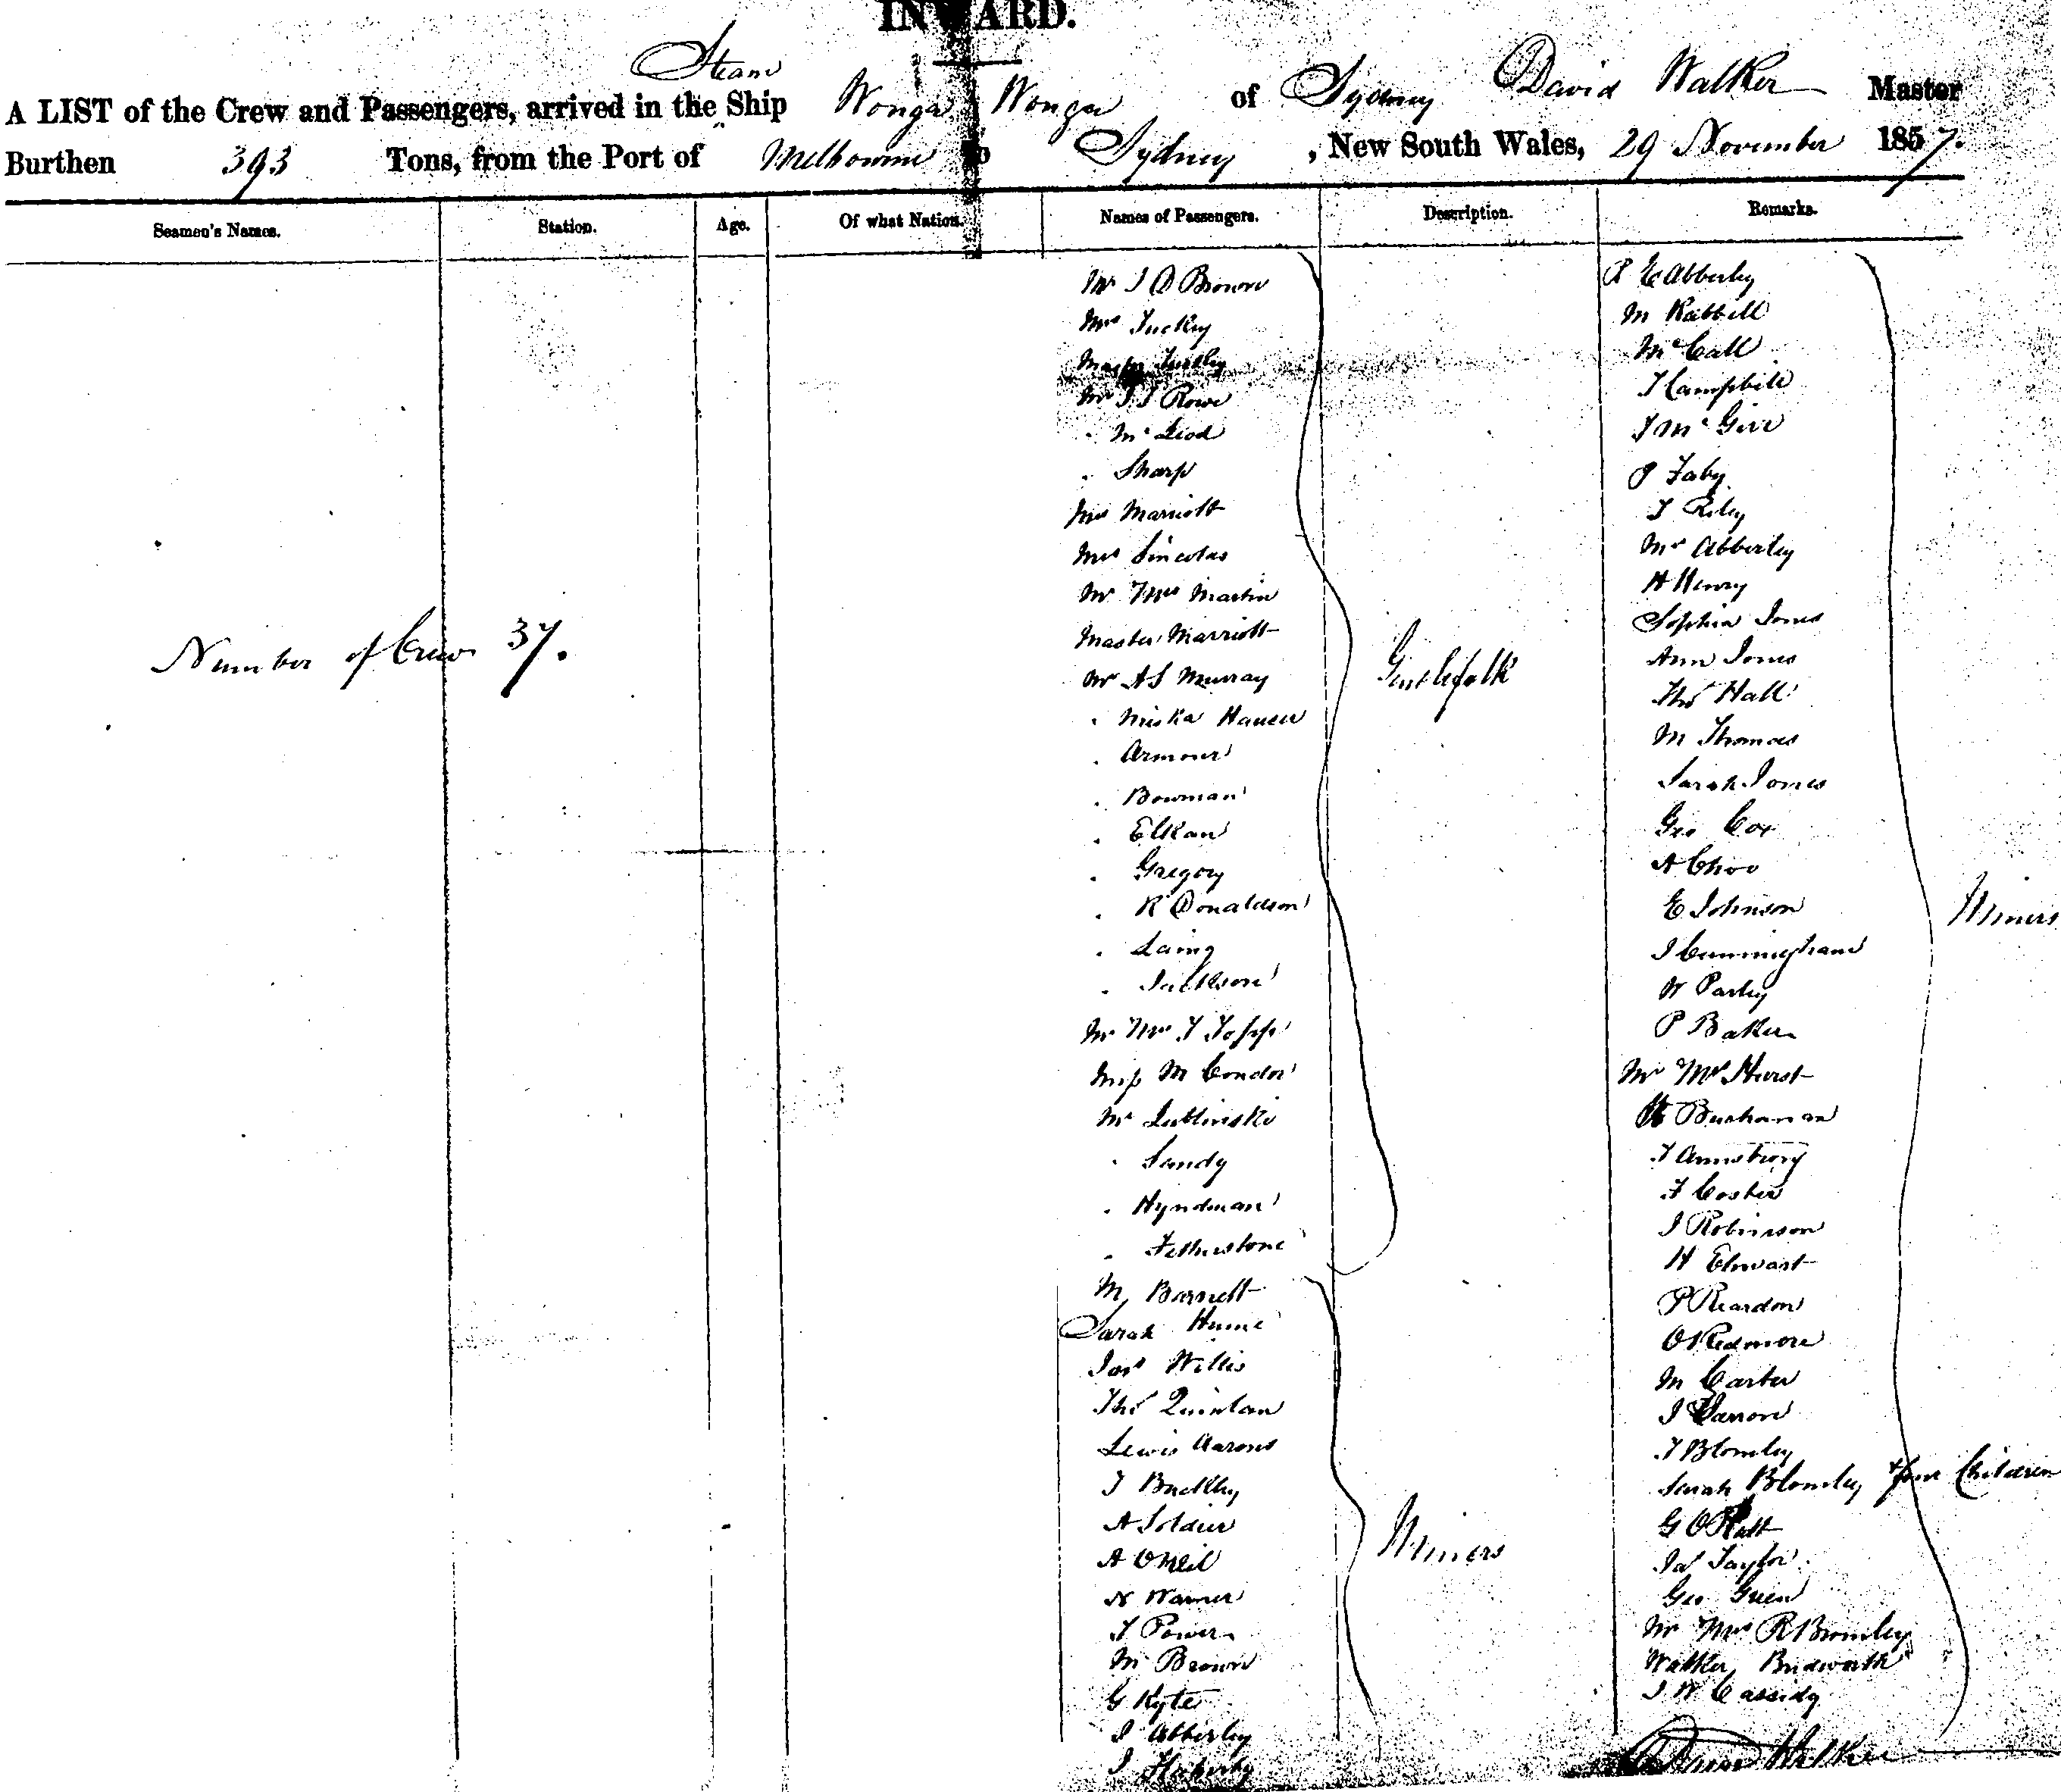 INWARD.
Steam
A LIST of the Crew and Passengers, arrived in the Ship Wonga Wonga of Sydney David Walker Master
Burthen 393 Tons, from the Port of Melbourne to Sydney, New South Wales, 29 November 1857.
Seamen's Names. Station. Age. Of what Nation. Names of Passengers. Description. Remarks.
Number of Crew 37.
Mr J D Brown
Mrs Tuckey
Master
Mr J J Rowe
. McLeod
. Sharp
Mrs Marriott
Mrs Lincolas
Mr Mrs Martin
Master Marriott
Mr A S Murray
. Miska Hauser
. Armour
. Bowman
. Elkan
. Gregory
. R Donaldson
. Laing
. Jackson
Mr Mrs J Topp
Miss M Condor
Mr Lublinski
. Sandy
. Hyndman
. Fetherstone
Gentlefolk
M Barnett
Sarah Hume
Jas Willis
Thos Quinlan
Lewis Aarons
J Buckley
A Soldier
A O Neil
N Warner
J Power
M Brown
G Kyte
J Abberley
J
Miners
R E Abberley
M Rabbill
McCall
J Campbell
J McGive
P Faby
J Riley
Mr Abberley
H Henry
Sophia Jones
Ann Jones
Thos Hall
M Thomas
Sarah Jones
Geo Cox
A Choo
E Johnson
J Cunningham
W Parley
P Baker
Mr Mrs Hurst
Buchanan
J Armstrong
F Coster
J Robinson
H Elwart
P Reardon
O Redmore
M Carter
J
J Blomley
Sarah Blomley & four Children
G
Jas Taylor
Geo Green
Mr Mrs R Bromley
Walker Bridworth
J W Cassidy
Miners
David Walker